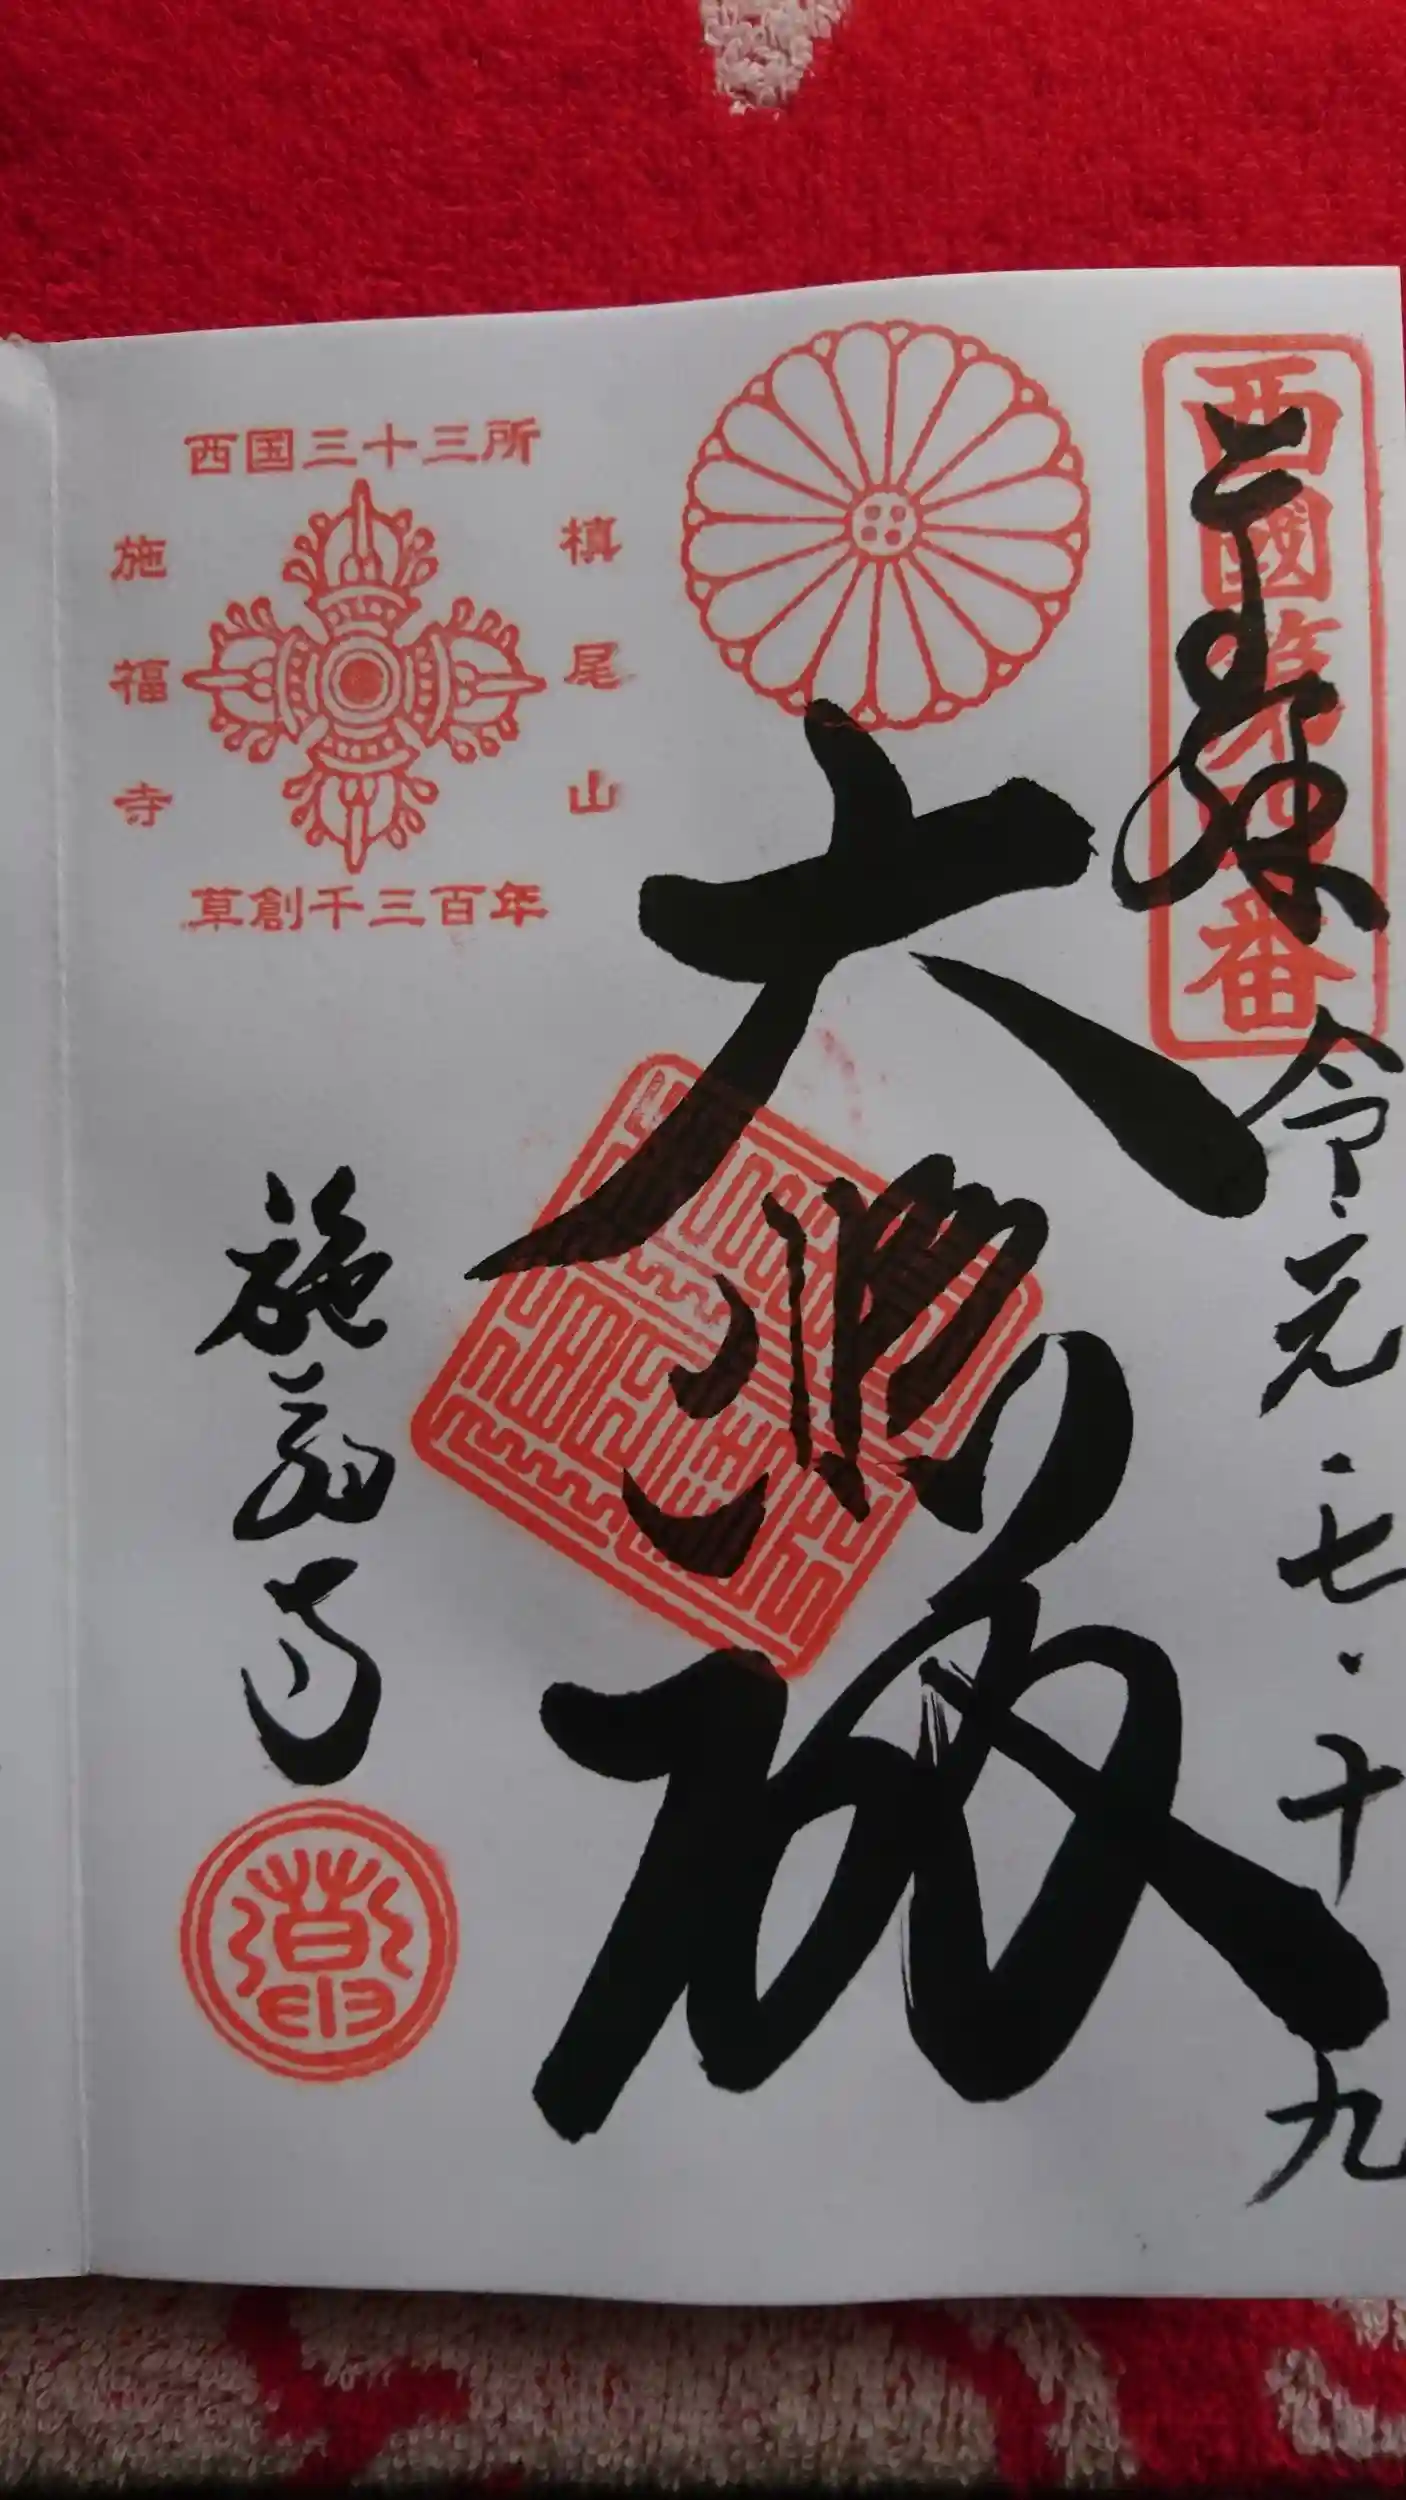 西國第四番
奉拝
令元・七・十九
大悲殿
西国三十三所
槙尾山
施福寺
草創千三百年
施福寺